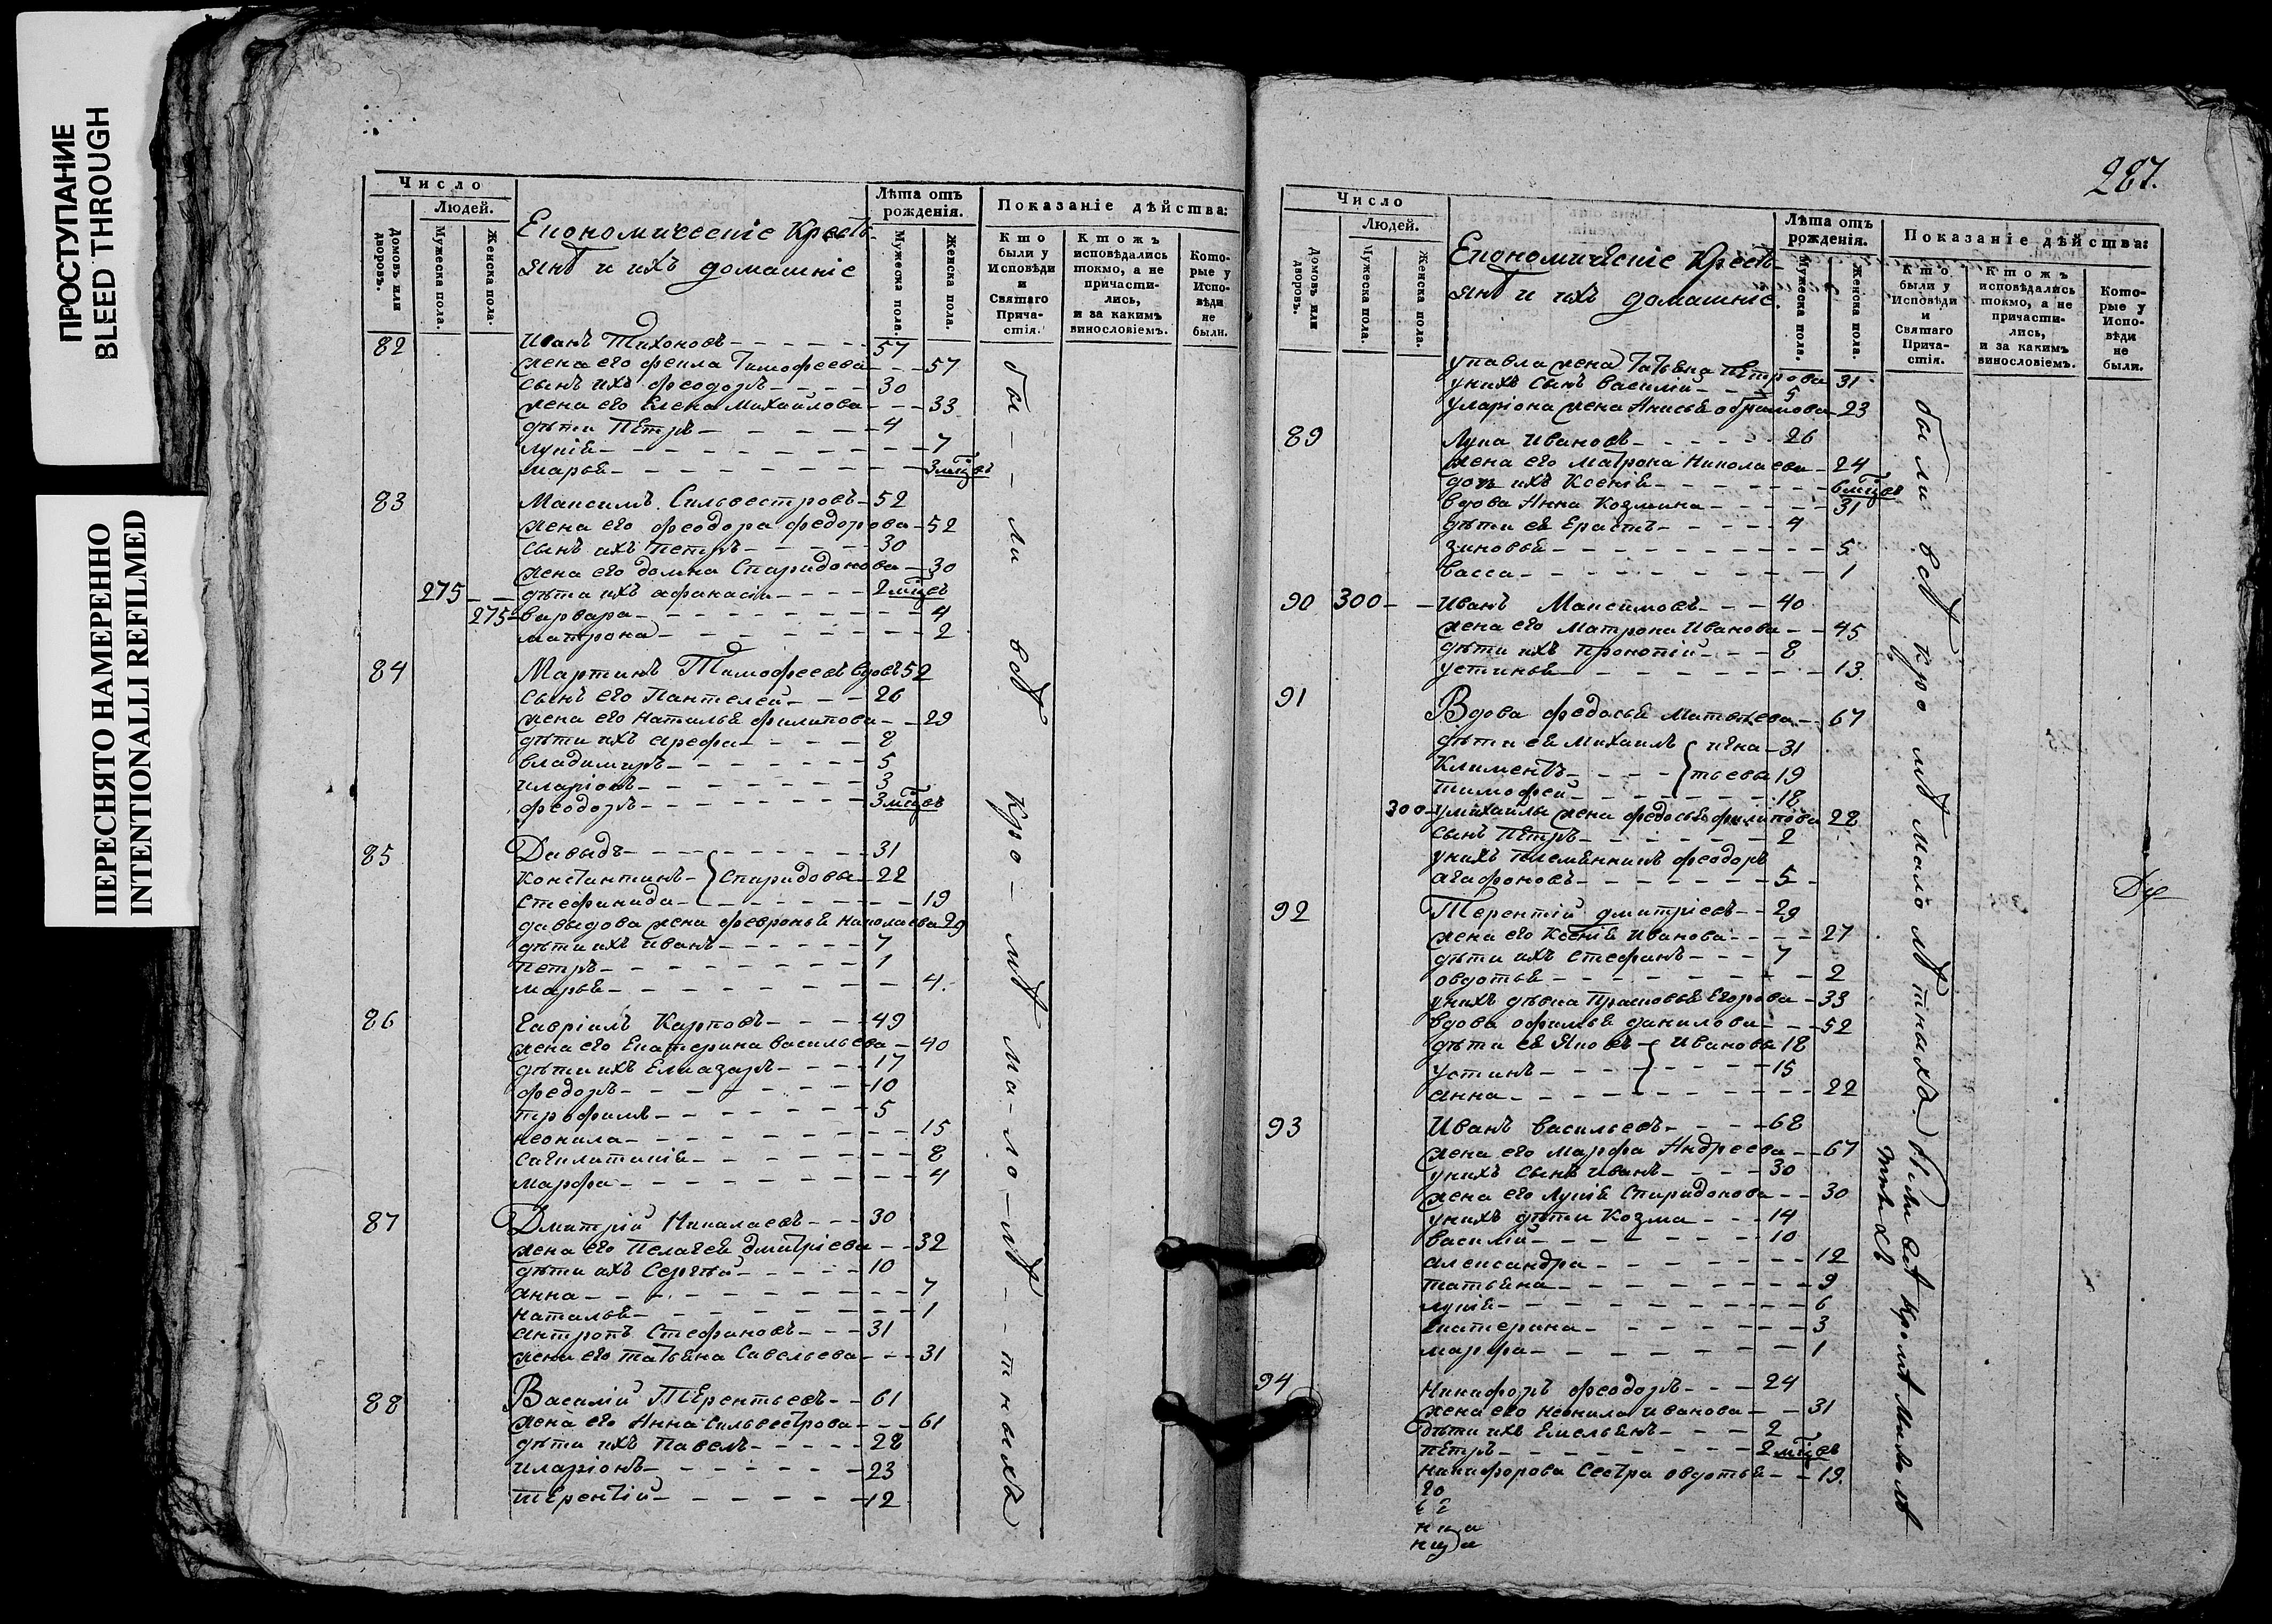 ПРОСТУПАНИЕ
BLEED THROUGH
ПЕРЕСНЯТО НАМЕРЕННО
INTENTIONALLI REFILMED
Число
Людей.
Домовъ или дворовъ.
Мужеска пола.
Женска пола.
Економическіе Кресть-
янѣ и ихъ домашніе
Лѣта отъ рожденія.
Мужеска пола.
Женска пола.
Показаніе дѣйства:
Кто были у Исповѣди и Святаго Прича-стія.
Ктожъ исповѣдались токмо, а не причасти-лись, и за какимъ винословіемъ.
Кото-рые у Испо-вѣди не были.
82 Иванъ Тихоновъ 57
жена его фекла Тимофеева 57
сынъ ихъ феодоръ 30
жена его Елена Михайлова 33
дѣти Петръ 4
лукія 7
марья 3 мцъ
83 Максимъ Сильвестровъ 52
жена его феодора федорова 52
сынъ ихъ петръ 30
жена его домна Спиридонова 30
275 дѣти ихъ афанасіи 2 мцъ
275 варвара 4
матрона 2
84 Мартинъ Тимофеевъ вдовъ 52
сынъ его Пантелей 26
жена его наталья филипова 29
дѣти ихъ арефа 8
владимиръ 5
иларіонъ 3
феодоръ 3 мцъ
85 Давыдъ 31
Константинъ Спиридовы 22
Стефанида 19
давыдова жена февронья николаева 29
дѣти ихъ иванъ 7
петръ 1
марья 4
86 Гавріилъ Карповъ 49
жена его Екатерина васильева 40
дѣти ихъ Елиазаръ 17
федоръ 10
трофимъ 5
неонила 15
8
марфа 4
87 Дмитрій Николаевъ 30
жена его Пелагея дмитріева 32
дѣти ихъ Сергѣй 10
анна 7
наталья 1
антропъ Стефановъ 31
жена его татьяна Савельева 31
88 Василій Терентьевъ 61
жена его Анна Сильвестрова 61
дѣти ихъ Павелъ 28
иларіонъ 23
терентій 12
бы - ли всѣ кро - мѣ ма - ло - лѣ - тныхъ
287.
Число
Людей.
Домовъ или дворовъ.
Мужеска пола.
Женска пола.
Економическіе Кресть-
янѣ и ихъ домашніе.
Лѣта отъ рожденія.
Мужеска пола.
Женска пола.
Показаніе дѣйства:
Кто были у Исповѣди и Святаго Прича-стія.
Ктожъ исповѣдались токмо, а не причасти-лись, и за какимъ винословіемъ.
Кото-рые у Испо-вѣди не были.
упавла жена Татьяна петрова 31
унихъ сынъ василій 5
уларіона жена Анисья 23
89 Лука ивановъ 26
жена его матрона николаева 24
дочь ихъ Ксенія 6 мцъ
вдова Анна Козмина 31
дѣти ея Ерастъ 4
зиновья 5
васса 1
90 300 иванъ Максимовъ 40
жена его матрона иванова 45
дѣти ихъ прокопій 8
устинья 13
91 Вдова федосья матвѣева 67
дѣти ея михаилъ игна 31
климентъ тьевы 19
тимофей 18
300 умихаилы жена федосья филипова 28
сынъ петръ 2
унихъ племянникъ феодоръ
агафоновъ 5
92 Терентій дмитріевъ 29
жена его Ксенія иванова 27
дѣти ихъ стефанъ 7
овдотья 2
унихъ дѣвка Прасковья Егорова 33
вдова офимья данилова 52
дѣти ея Яковъ ивановы 18
устинъ 15
анна 22
93 Иванъ васильевъ 68
жена его марфа Андреева 67
унихъ сынъ иванъ 30
жена его лукія Спиридонова 30
унихъ дѣти Козма 14
василій 10
александра 12
татьяна 9
лукія 6
екатерина 3
марфа 1
94 Никифоръ феодоръ 24
жена его неонила иванова 31
дѣти ихъ Емельянъ 2
петръ 2 мцъ
никифорова сестра овдотья 19
были всѣ кро мѣ мало лѣ тныхъ
были всѣ кромѣ малолѣ
тнихъ